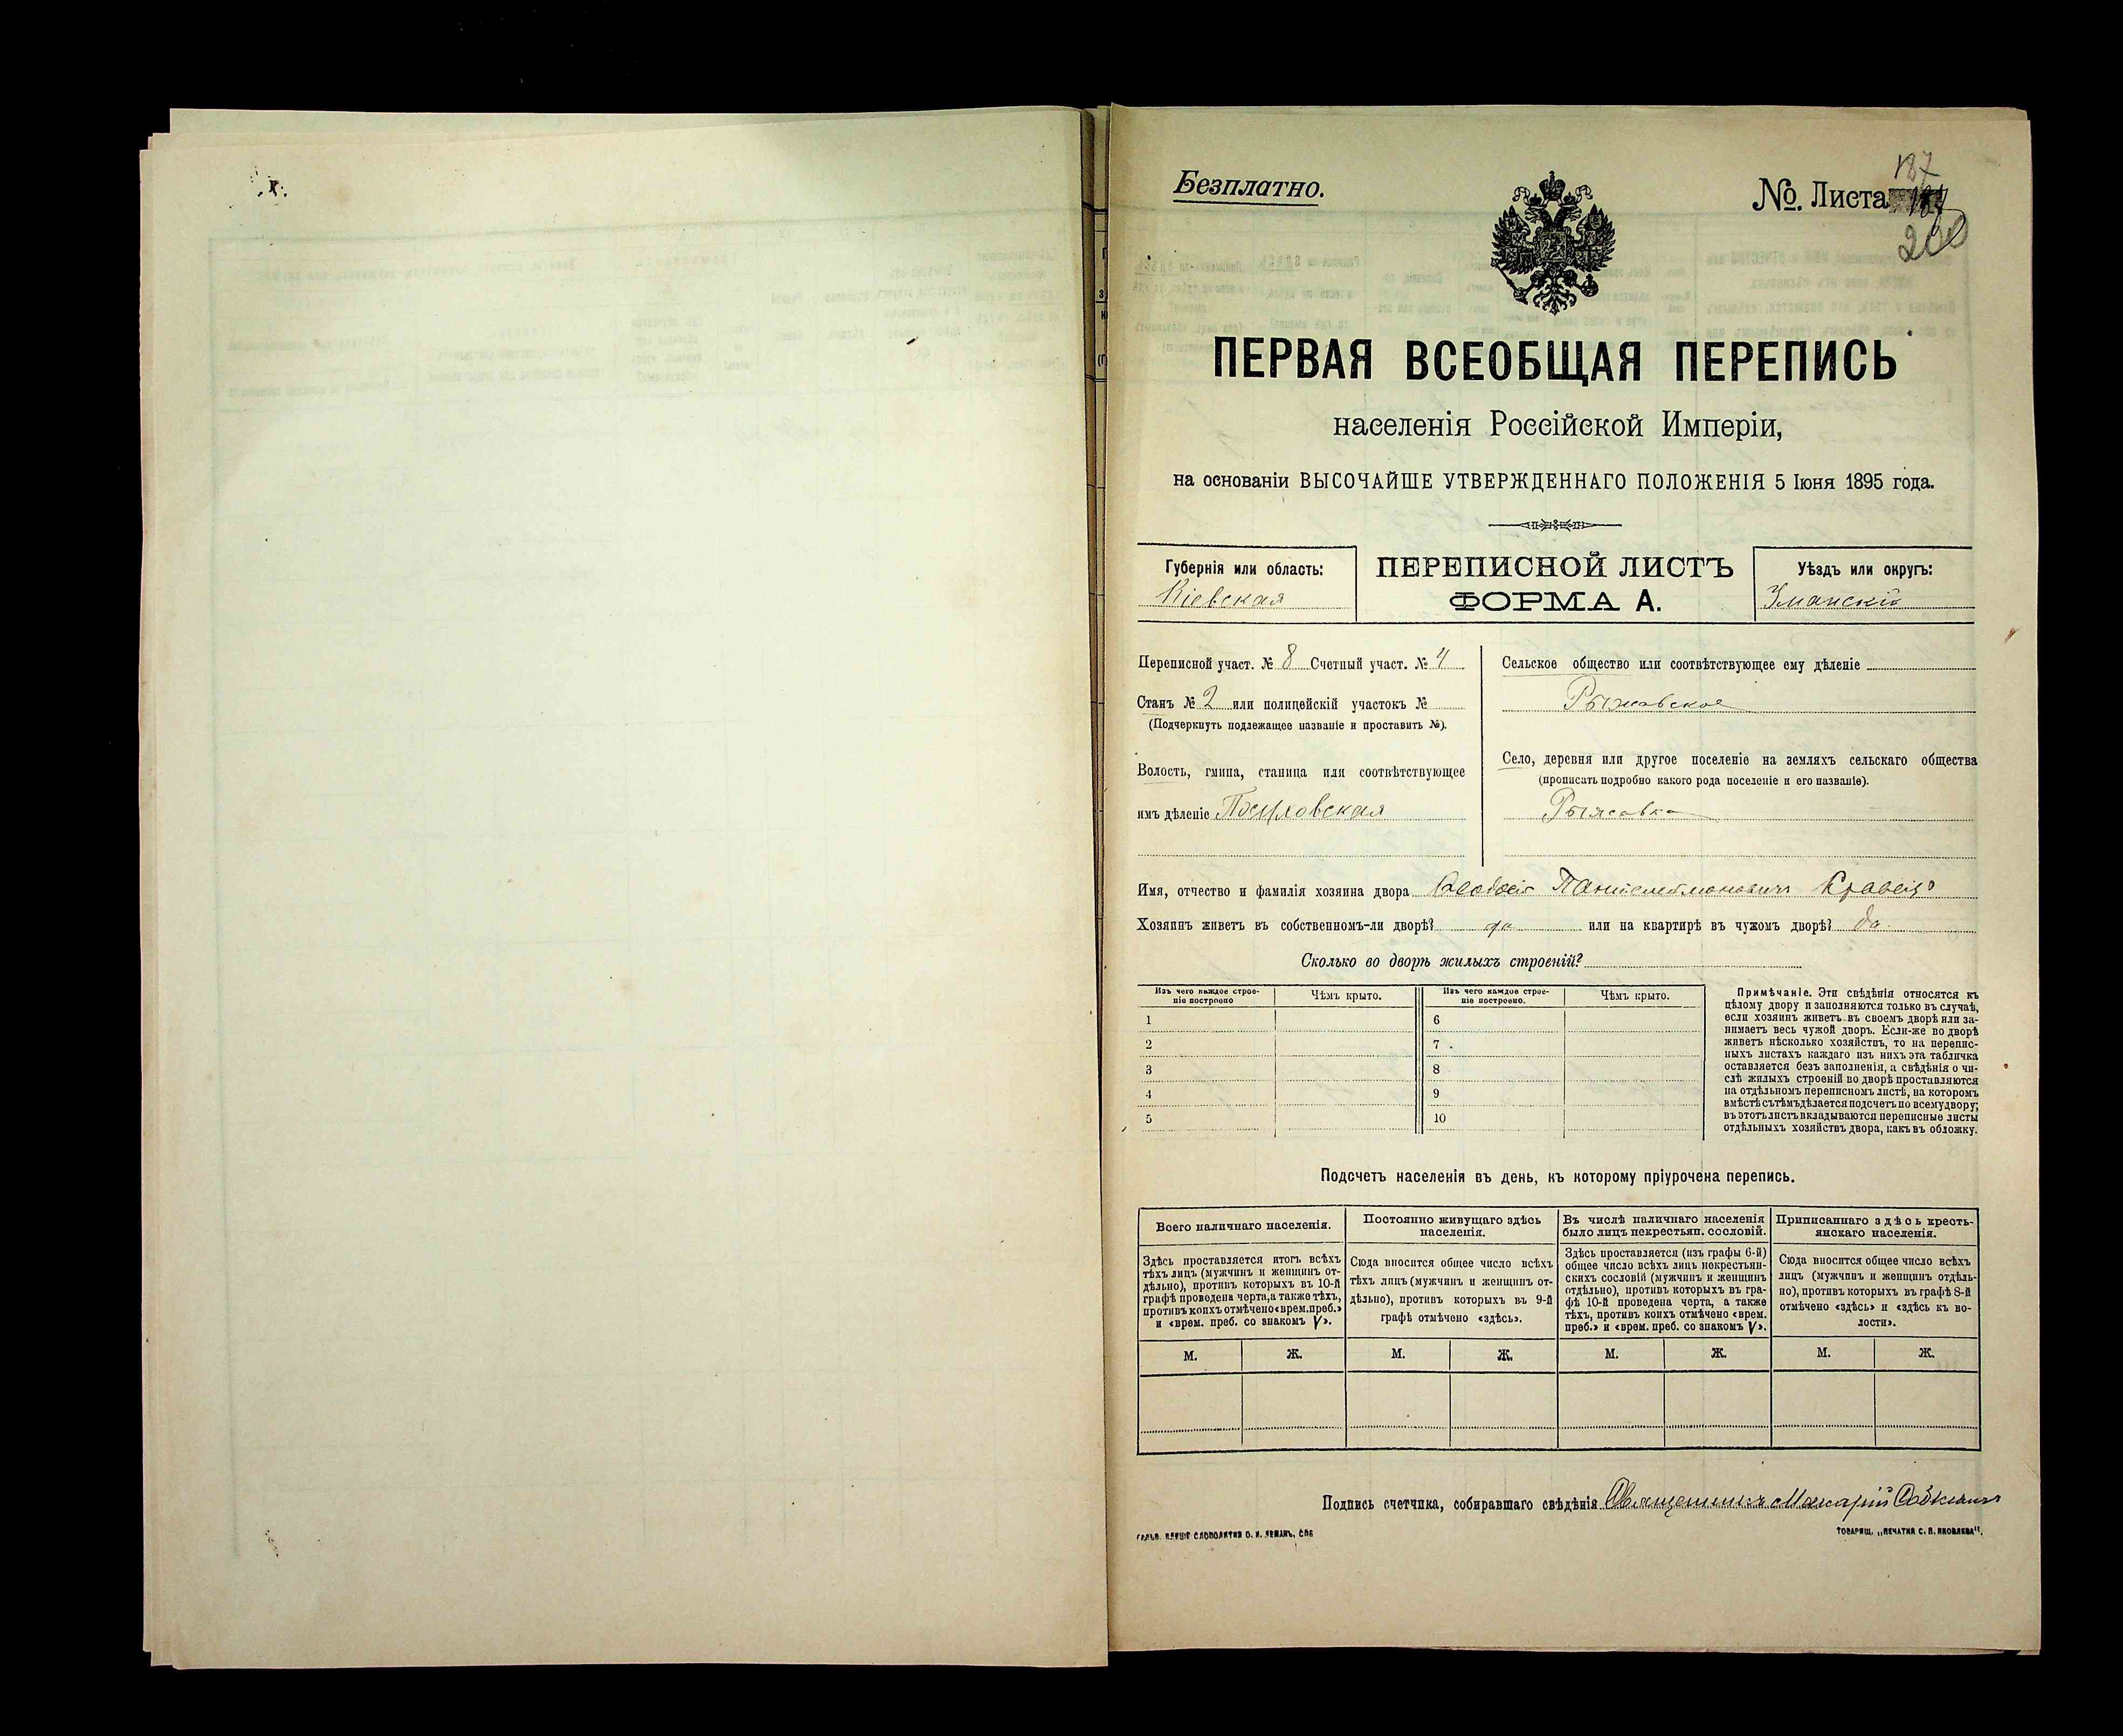 Безплатно.
№. Листа
187
200
ПЕРВАЯ ВСЕОБЩАЯ ПЕРЕПИСЬ
населенія Россійской Имперіи,
на основаніи ВЫСОЧАЙШЕ УТВЕРЖДЕННАГО ПОЛОЖЕНІЯ 5 Іюня 1895 года.
Губернія или область:
Кіевская
ПЕРЕПИСНОЙ ЛИСТЪ
ФОРМА А.
Уѣздъ или округъ:
Уманскій
Переписной участ. № 8 Счетный участ. № 4
Станъ № 2 или полицейскій участокъ №
(Подчеркнуть подлежащее названіе и проставить №).
Волость, гмина, станица или соотвѣтствующее
имъ дѣленіе
Сельское общество или соотвѣтствующее ему дѣленіе
Рыжовское
Село, деревня или другое поселеніе на земляхъ сельскаго общества
(прописать подробно какого рода поселеніе и его названіе).
Рыжовка
Имя, отчество и фамилія хозяина двора Феодосій Пантелеймоновичъ Кравецъ
Хозяинъ живетъ въ собственномъ-ли дворѣ? да или на квартирѣ въ чужомъ дворѣ? да
Сколько во дворѣ жилыхъ строеній?
Изъ чего каждое строе-
ніе построено
Чѣмъ крыто.
Изъ чего каждое строе-
ніе построено.
Чѣмъ крыто.
1 6
2 7
3 8
4 9
5 10
Примѣчаніе. Эти свѣдѣнія относятся къ
цѣлому двору и заполняются только въ случаѣ,
если хозяинъ живетъ въ своемъ дворѣ или за-
нимаетъ весь чужой дворъ. Если-же во дворѣ
живетъ нѣсколько хозяйствъ, то на перепис-
ныхъ листахъ каждаго изъ нихъ эта табличка
оставляется безъ заполненія, а свѣдѣнія о чи-
слѣ жилыхъ строеній во дворѣ проставляются
на отдѣльномъ переписномъ листѣ, на которомъ
вмѣстѣ съ тѣмъ дѣлается подсчетъ по всему двору;
въ этотъ листъ вкладываются переписные листы
отдѣльныхъ хозяйствъ двора, какъ въ обложку.
Подсчетъ населенія въ день, къ которому пріурочена перепись.
Всего наличнаго населенія.
Здѣсь проставляется итогъ всѣхъ
тѣхъ лицъ (мужчинъ и женщинъ от-
дѣльно), противъ которыхъ въ 10-й
графѣ проведена черта, а также тѣхъ,
противъ коихъ отмѣчено «врем. преб.»
и «врем. преб. со знакомъ V».
Постоянно живущаго здѣсь
населенія.
Сюда вносится общее число всѣхъ
тѣхъ лицъ (мужчинъ и женщинъ от-
дѣльно), противъ которыхъ въ 9-й
графѣ отмѣчено «здѣсь».
Въ числѣ наличнаго населенія
было лицъ некрестьян. сословій.
Здѣсь проставляется (изъ графы 6-й)
общее число всѣхъ лицъ некрестьян-
скихъ сословій (мужчинъ и женщинъ
отдѣльно), противъ которыхъ въ гра-
фѣ 10-й проведена черта, а также
тѣхъ, противъ коихъ отмѣчено «врем.
преб.» и «врем. преб. со знакомъ V».
Приписаннаго здѣсь кресть-
янскаго населенія.
Сюда вносится общее число всѣхъ
лицъ (мужчинъ и женщинъ отдѣль-
но), противъ которыхъ въ графѣ 8-й
отмѣчено «здѣсь» и «здѣсь къ во-
лости».
М. Ж. М. Ж. М. Ж. М. Ж.
Подпись счетчика, собиравшаго свѣдѣнія Священникъ Макарій
СЛОВОЛИТНЯ О. И. ЛЕМАНЪ, СПБ
ТОВАРИЩ. „ПЕЧАТНЯ С. П. ЯКОВЛЕВА“.